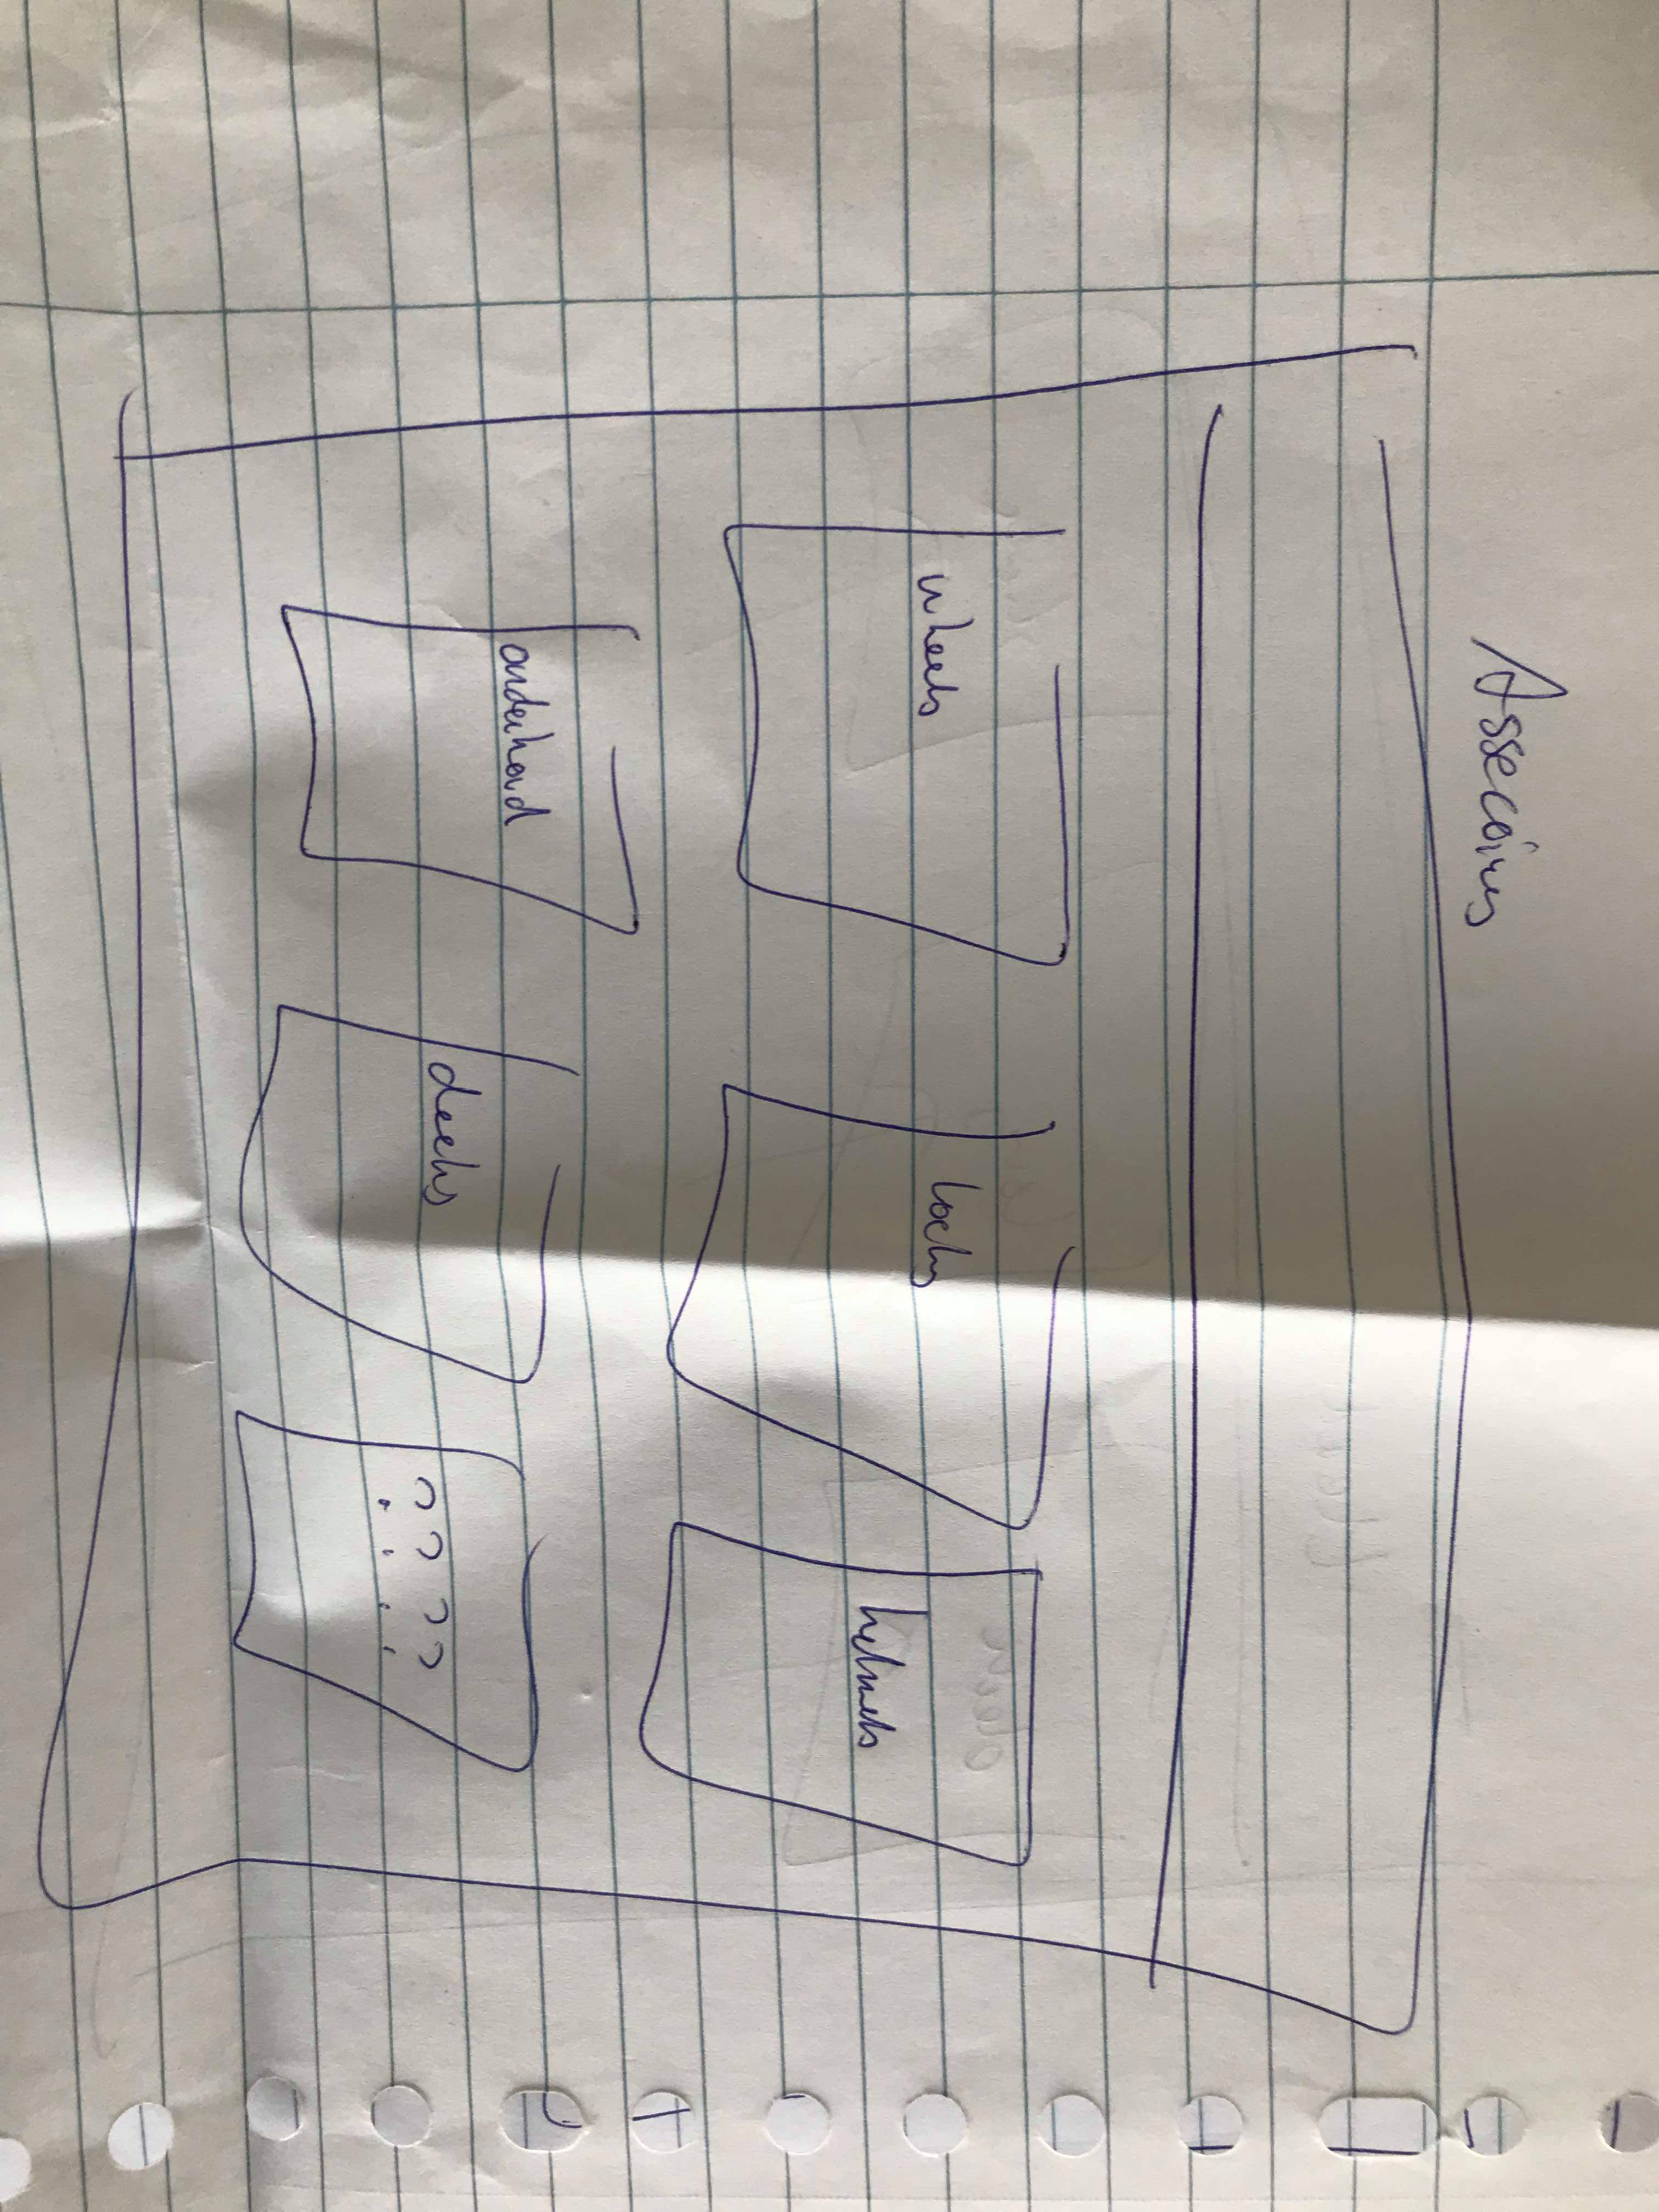 Assecoires
wheels
locks
helmets
onderhoud
decks
? ? ? ?